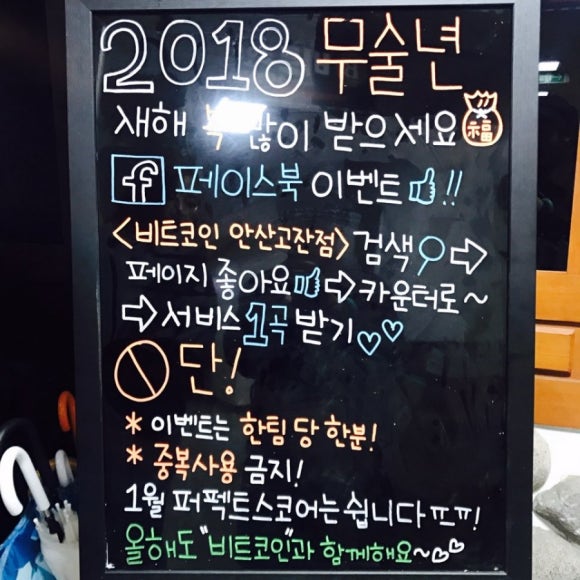 2018 무술년
새해 복 많이 받으세요 福
f 페이스북 이벤트 !!
<비트코인 안산고잔점> 검색 ⇨
페이지 좋아요 ⇨ 카운터로~
⇨ 서비스 1곡 받기♡♡
단!
* 이벤트는 한팀 당 한분!
* 중복사용 금지!
1월 퍼펙트스코어는 쉽니다 ㅠㅠ!
올해도 "비트코인"과 함께해요~♡♡